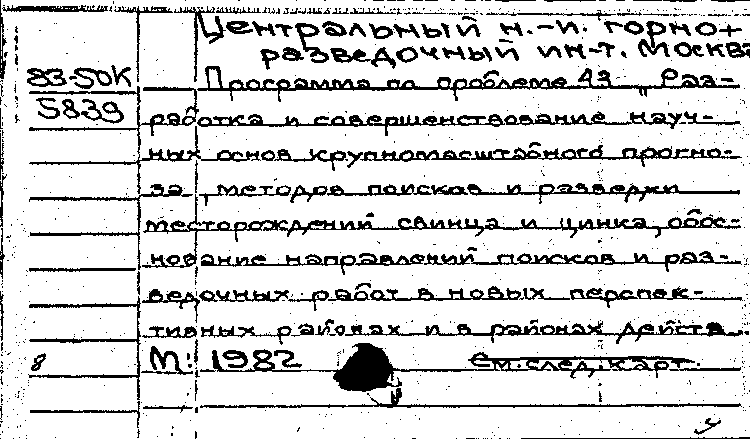 Центральный н.-и. горно+
разведочный ин-т. Москва
83-50К Программа по проблеме 43 „Раз-
5839 работка и совершенствование науч-
ных основ крупномасштабного прогно-
за, методов поисков и разведки
месторождений свинца и цинка, обос-
нование направлений поисков и раз-
ведочных работ в новых перспек-
тивных районах и в районах действ...
8 М: 1982 См. след. карт.